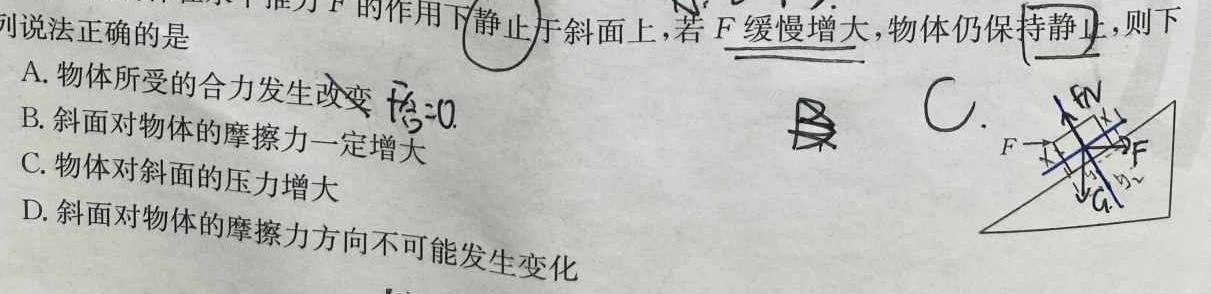 F的作用下静止于斜面上,若F缓慢增大,物体仍保持静止,则下
列说法正确的是
A. 物体所受的合力发生改变 F合=0.
B. 斜面对物体的摩擦力一定增大
C. 物体对斜面的压力增大
D. 斜面对物体的摩擦力方向不可能发生变化
C.
FN
F
F
G